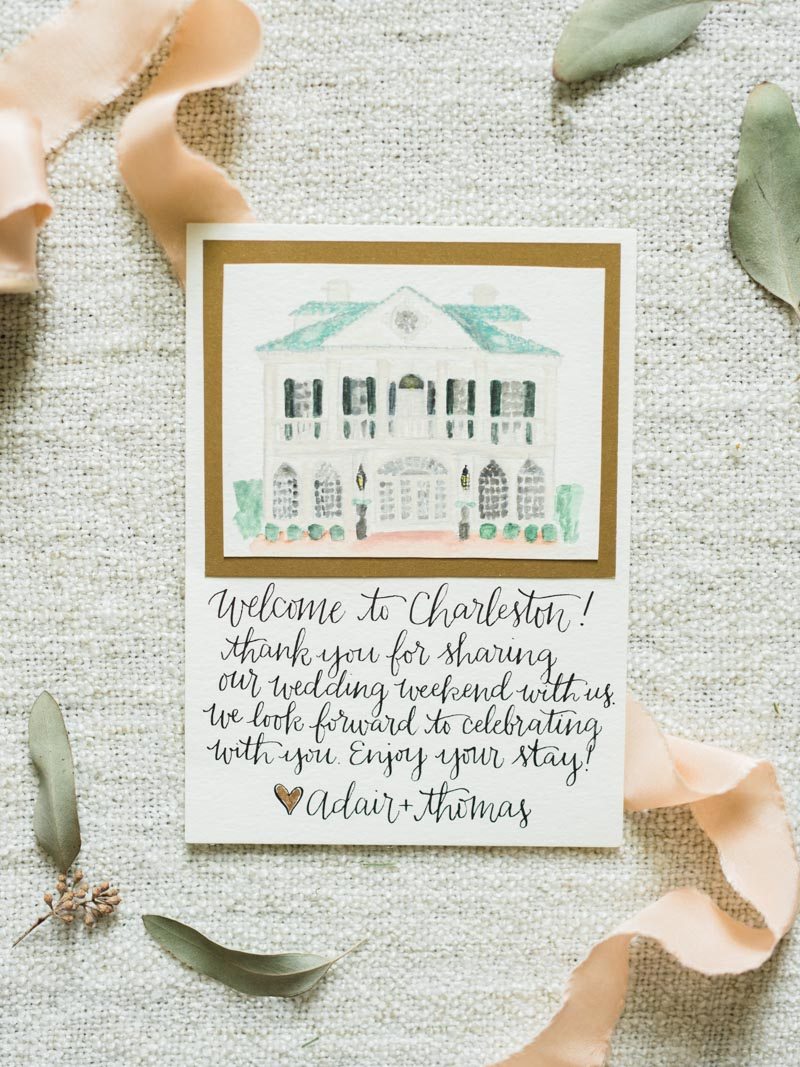 Welcome to Charleston!
thank you for sharing
our wedding weekend with us.
we look forward to celebrating
with you. Enjoy your stay!
♥ adair + thomas